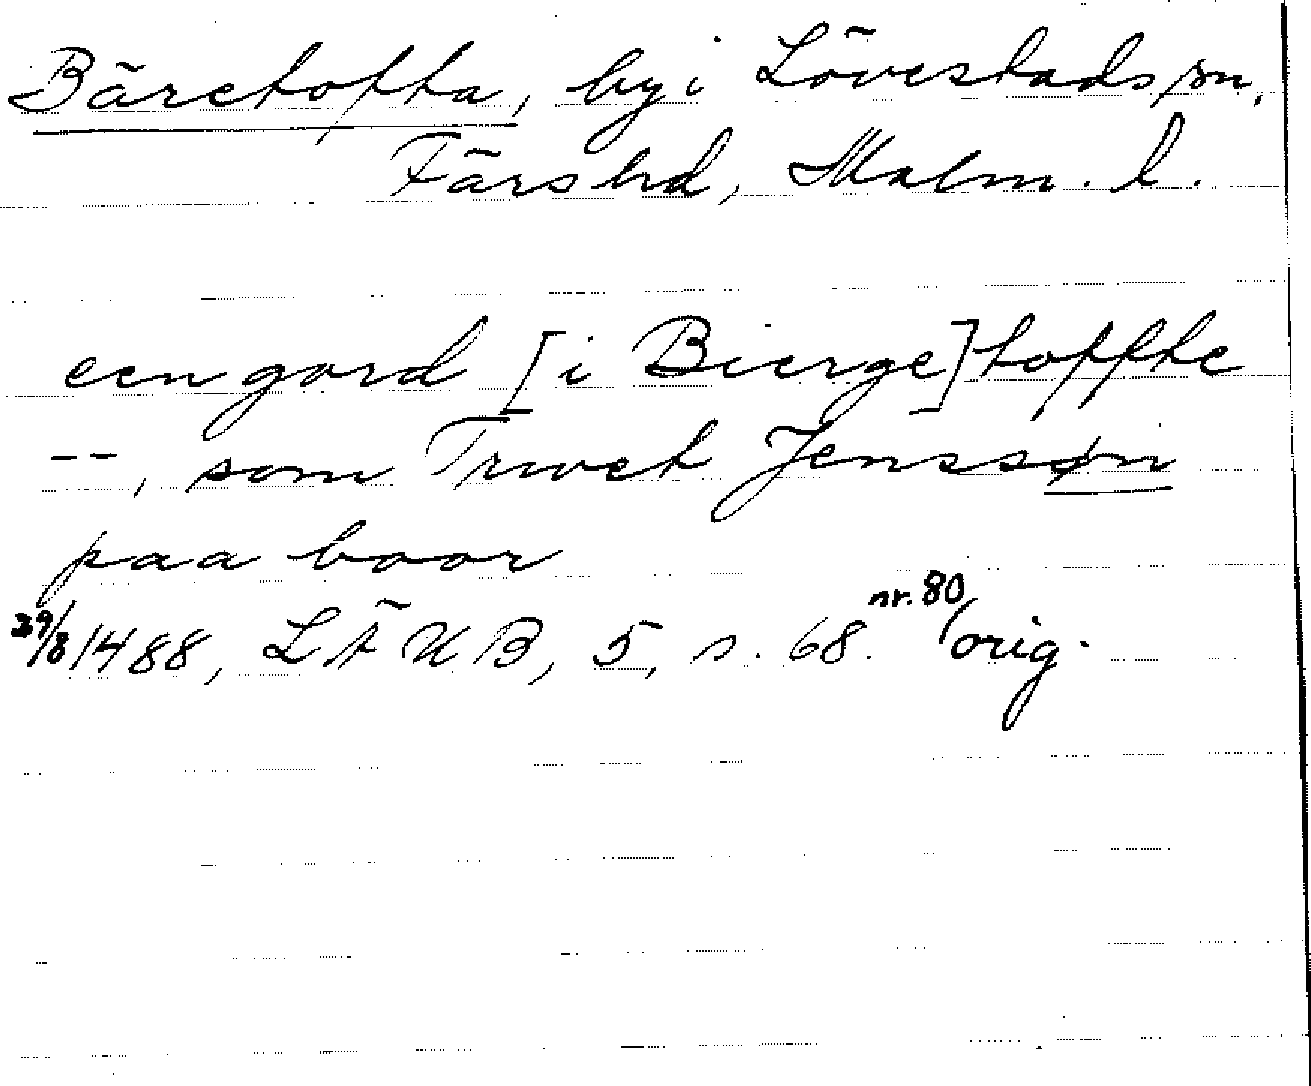 Bäretofta, by i Lövestads sn,
Färs hd, Malm. l.
een gord [i Bierge]toffte
--, som Trwet Jenssøn
paa boor
29/8 1488, LÄUB, 5, s. 68. nr. 80 orig.